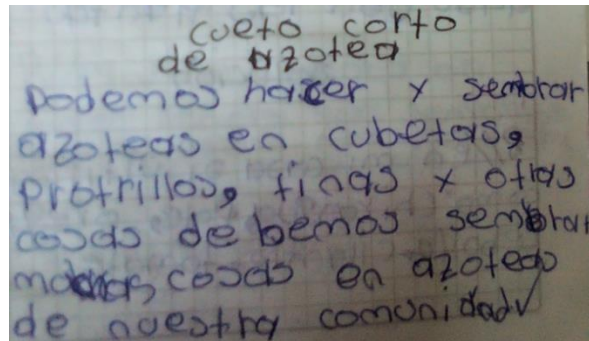 cueto corto
de azotea
Podemos hacer y sembrar
azoteas en cubetas,
protrillos, tinas y otras
cosas debemos sembrar
muchas cosas en azoteas
de nuestra comunidad